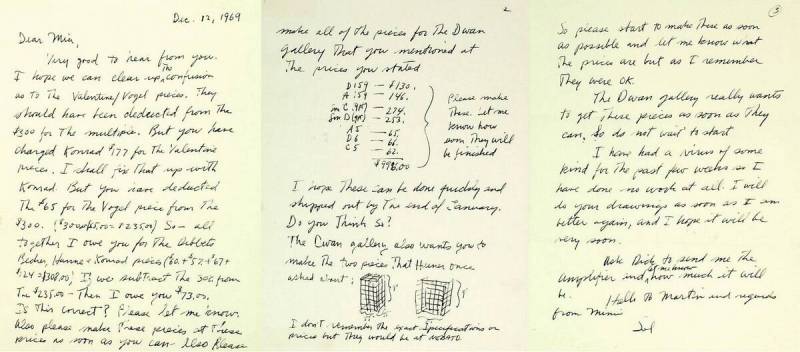 Dec. 12, 1969
Dear Mia,
Very good to hear from you.
I hope we can clear up the confusion
as to the Valentine/Vogel pieces. They
should have been deducted from the
$300 for the multiple. But you have
charged Konrad $177 for the Valentine
pieces. I shall fix that up with
Konrad. But you have deducted
the $65 for the Vogel piece from the
$300. ($300 $65.00 = $235.00) So — all
together I owe you for the
Becher, Hanne + Konrad pieces ($60. + $57. + $67 +
$124 = $308.00) If we subtract the 308. from
the $235.00 — Then I owe you $73.00.
Is this correct? Please let me know.
Also please make these pieces at these
prices as soon as you can. Also please
2
make all of the pieces for the Dwan
gallery that you mentioned at
the prices you stated
D 159 — $130.
A 159 — 146.
Sm C — 274.
Sm D — 253.
A5 — 65.
D6 — 66.
C5 — 62.
$996.00
Please make
these. Let me
know how
soon they will
be finished
I hope these can be done quickly and
shipped out by the end of January.
Do you think so?
The Dwan gallery also wants you to
make the two pieces that Heiner once
asked about:
I don't remember the exact specifications or
prices but they would be at
3
So please start to make these as soon
as possible and let me know what
the prices are but as I remember
they were OK.
The Dwan gallery really wants
to get these pieces as soon as they
can. So do not wait to start
I have had a virus of some
kind for the past few weeks so I
have done no work at all. I will
do your drawings as soon as I am
better again, and I hope it will be
very soon.
Ask Dick to send me the
amplifier and let me know how much it will
be. Hello to Martin and regards
from Mimi
Sol